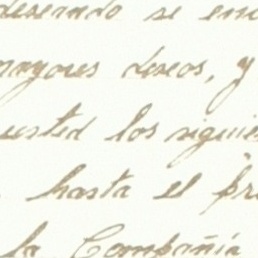 deseando se en
mayores deseos, y
usted los siguie
hasta el pr
la Compañia